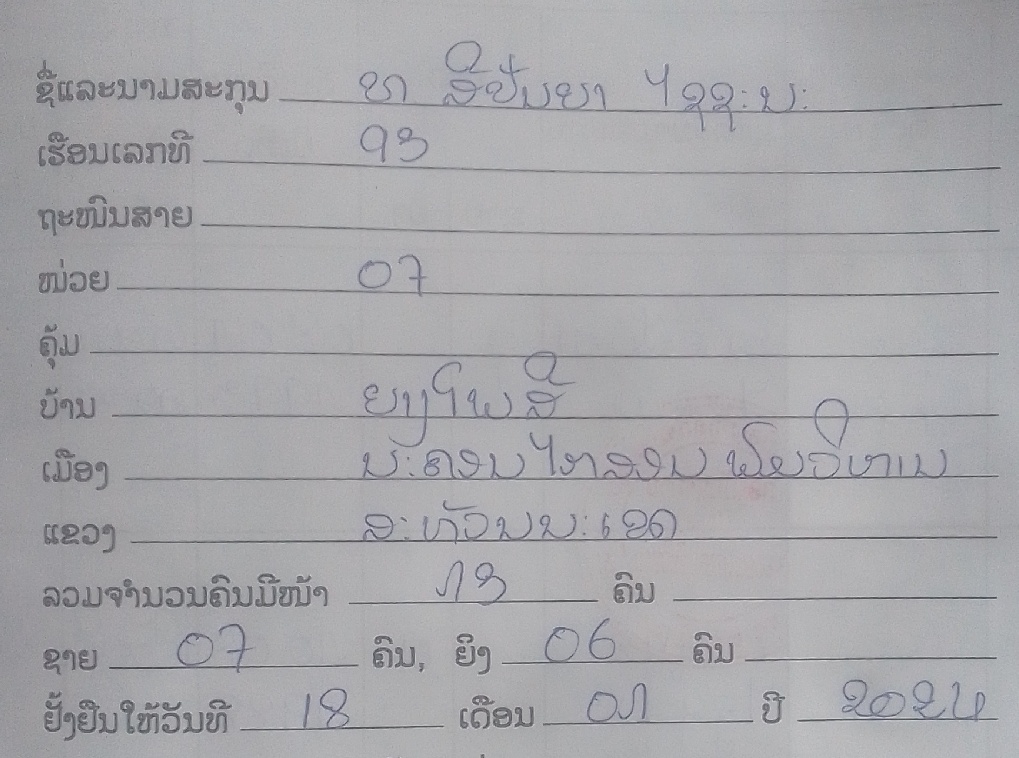 ຊື່ແລະນາມສະກຸນ ທາ ສີປັນຍາ ໄຊຊະນະ
ເຮືອນເລກທີ 93
ຖະໜົນສາຍ
ໜ່ວຍ 07
ຄຸ້ມ
ບ້ານ ຍາງໂພສີ
ເມືອງ ນະຄອນໄກສອນ ພົມວິຫານ
ແຂວງ ສະຫວັນນະເຂດ
ລວມຈຳນວນຄົນມີໜ້າ 13 ຄົນ
ຊາຍ 07 ຄົນ, ຍິງ 06 ຄົນ
ຢັ້ງຢືນໃຫ້ວັນທີ 18 ເດືອນ 01 ປີ 2024